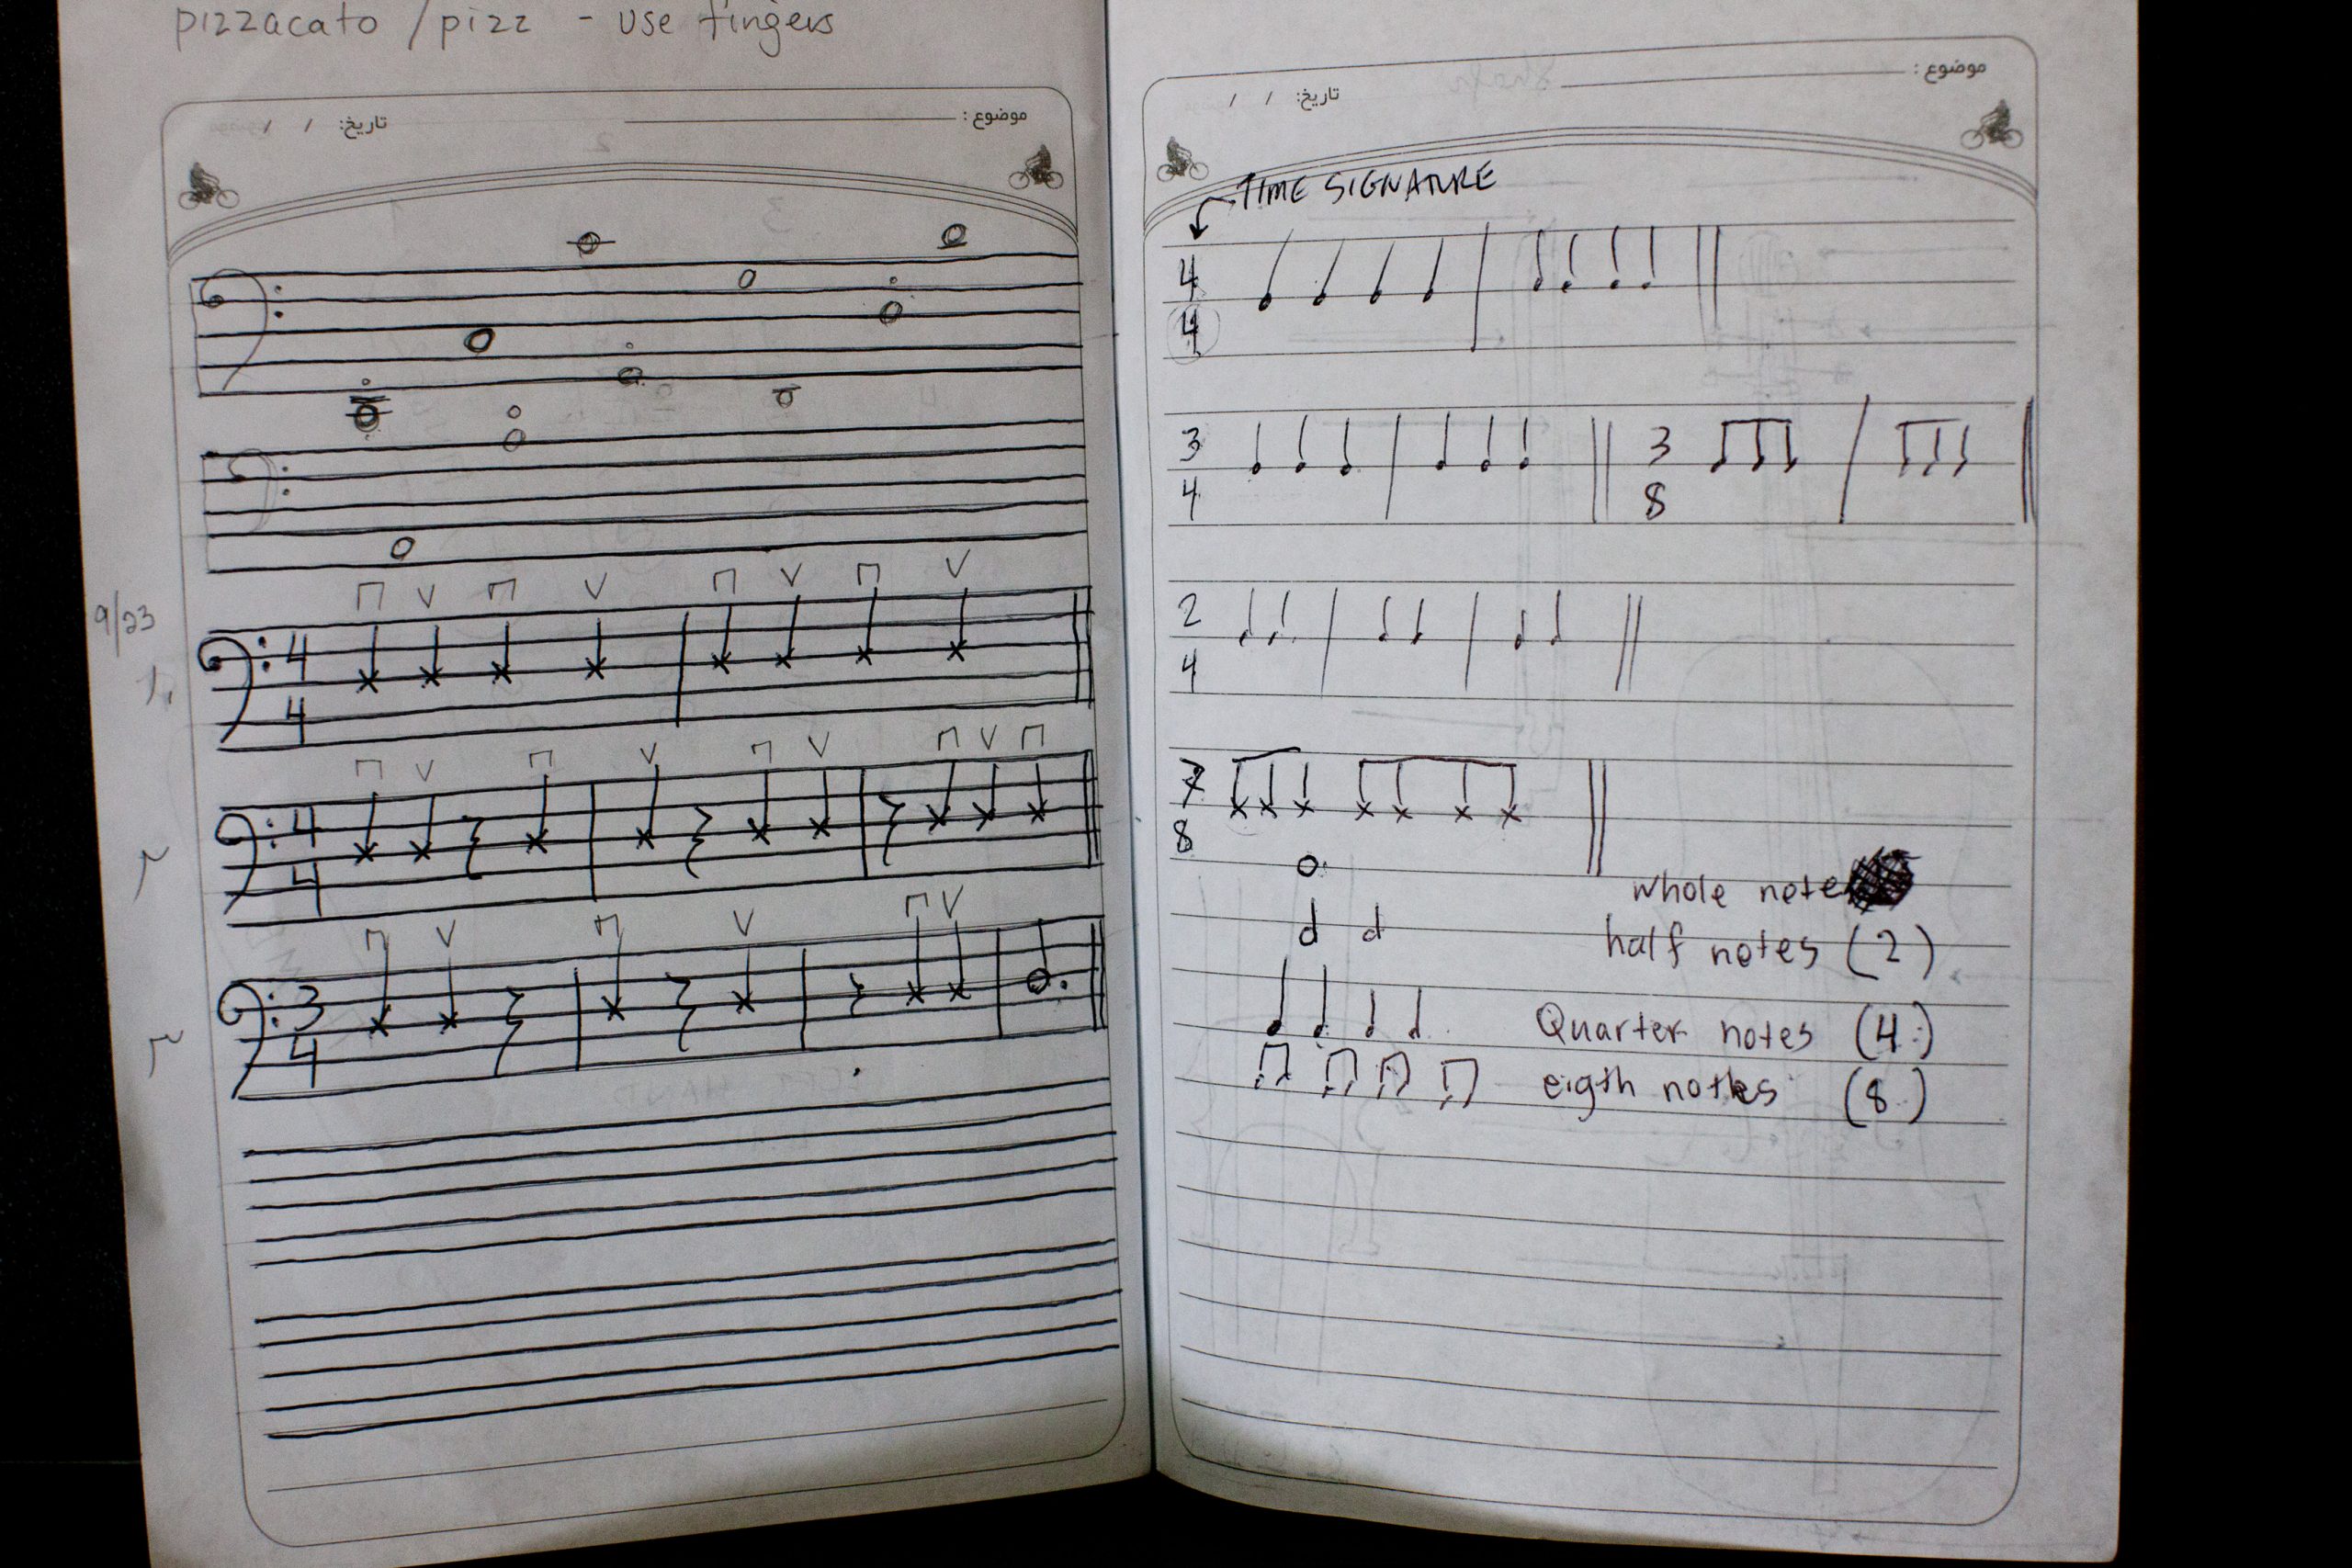 pizzacato / pizz - use fingers
موضوع :
تاريخ: / /
9/23
4
4
١
4
4
٢
3
4
٣
موضوع :
تاريخ: / /
TIME SIGNATURE
4
4
3
4
3
8
2
4
7
8
whole note
half notes (2)
Quarter notes (4)
eigth notes (8)